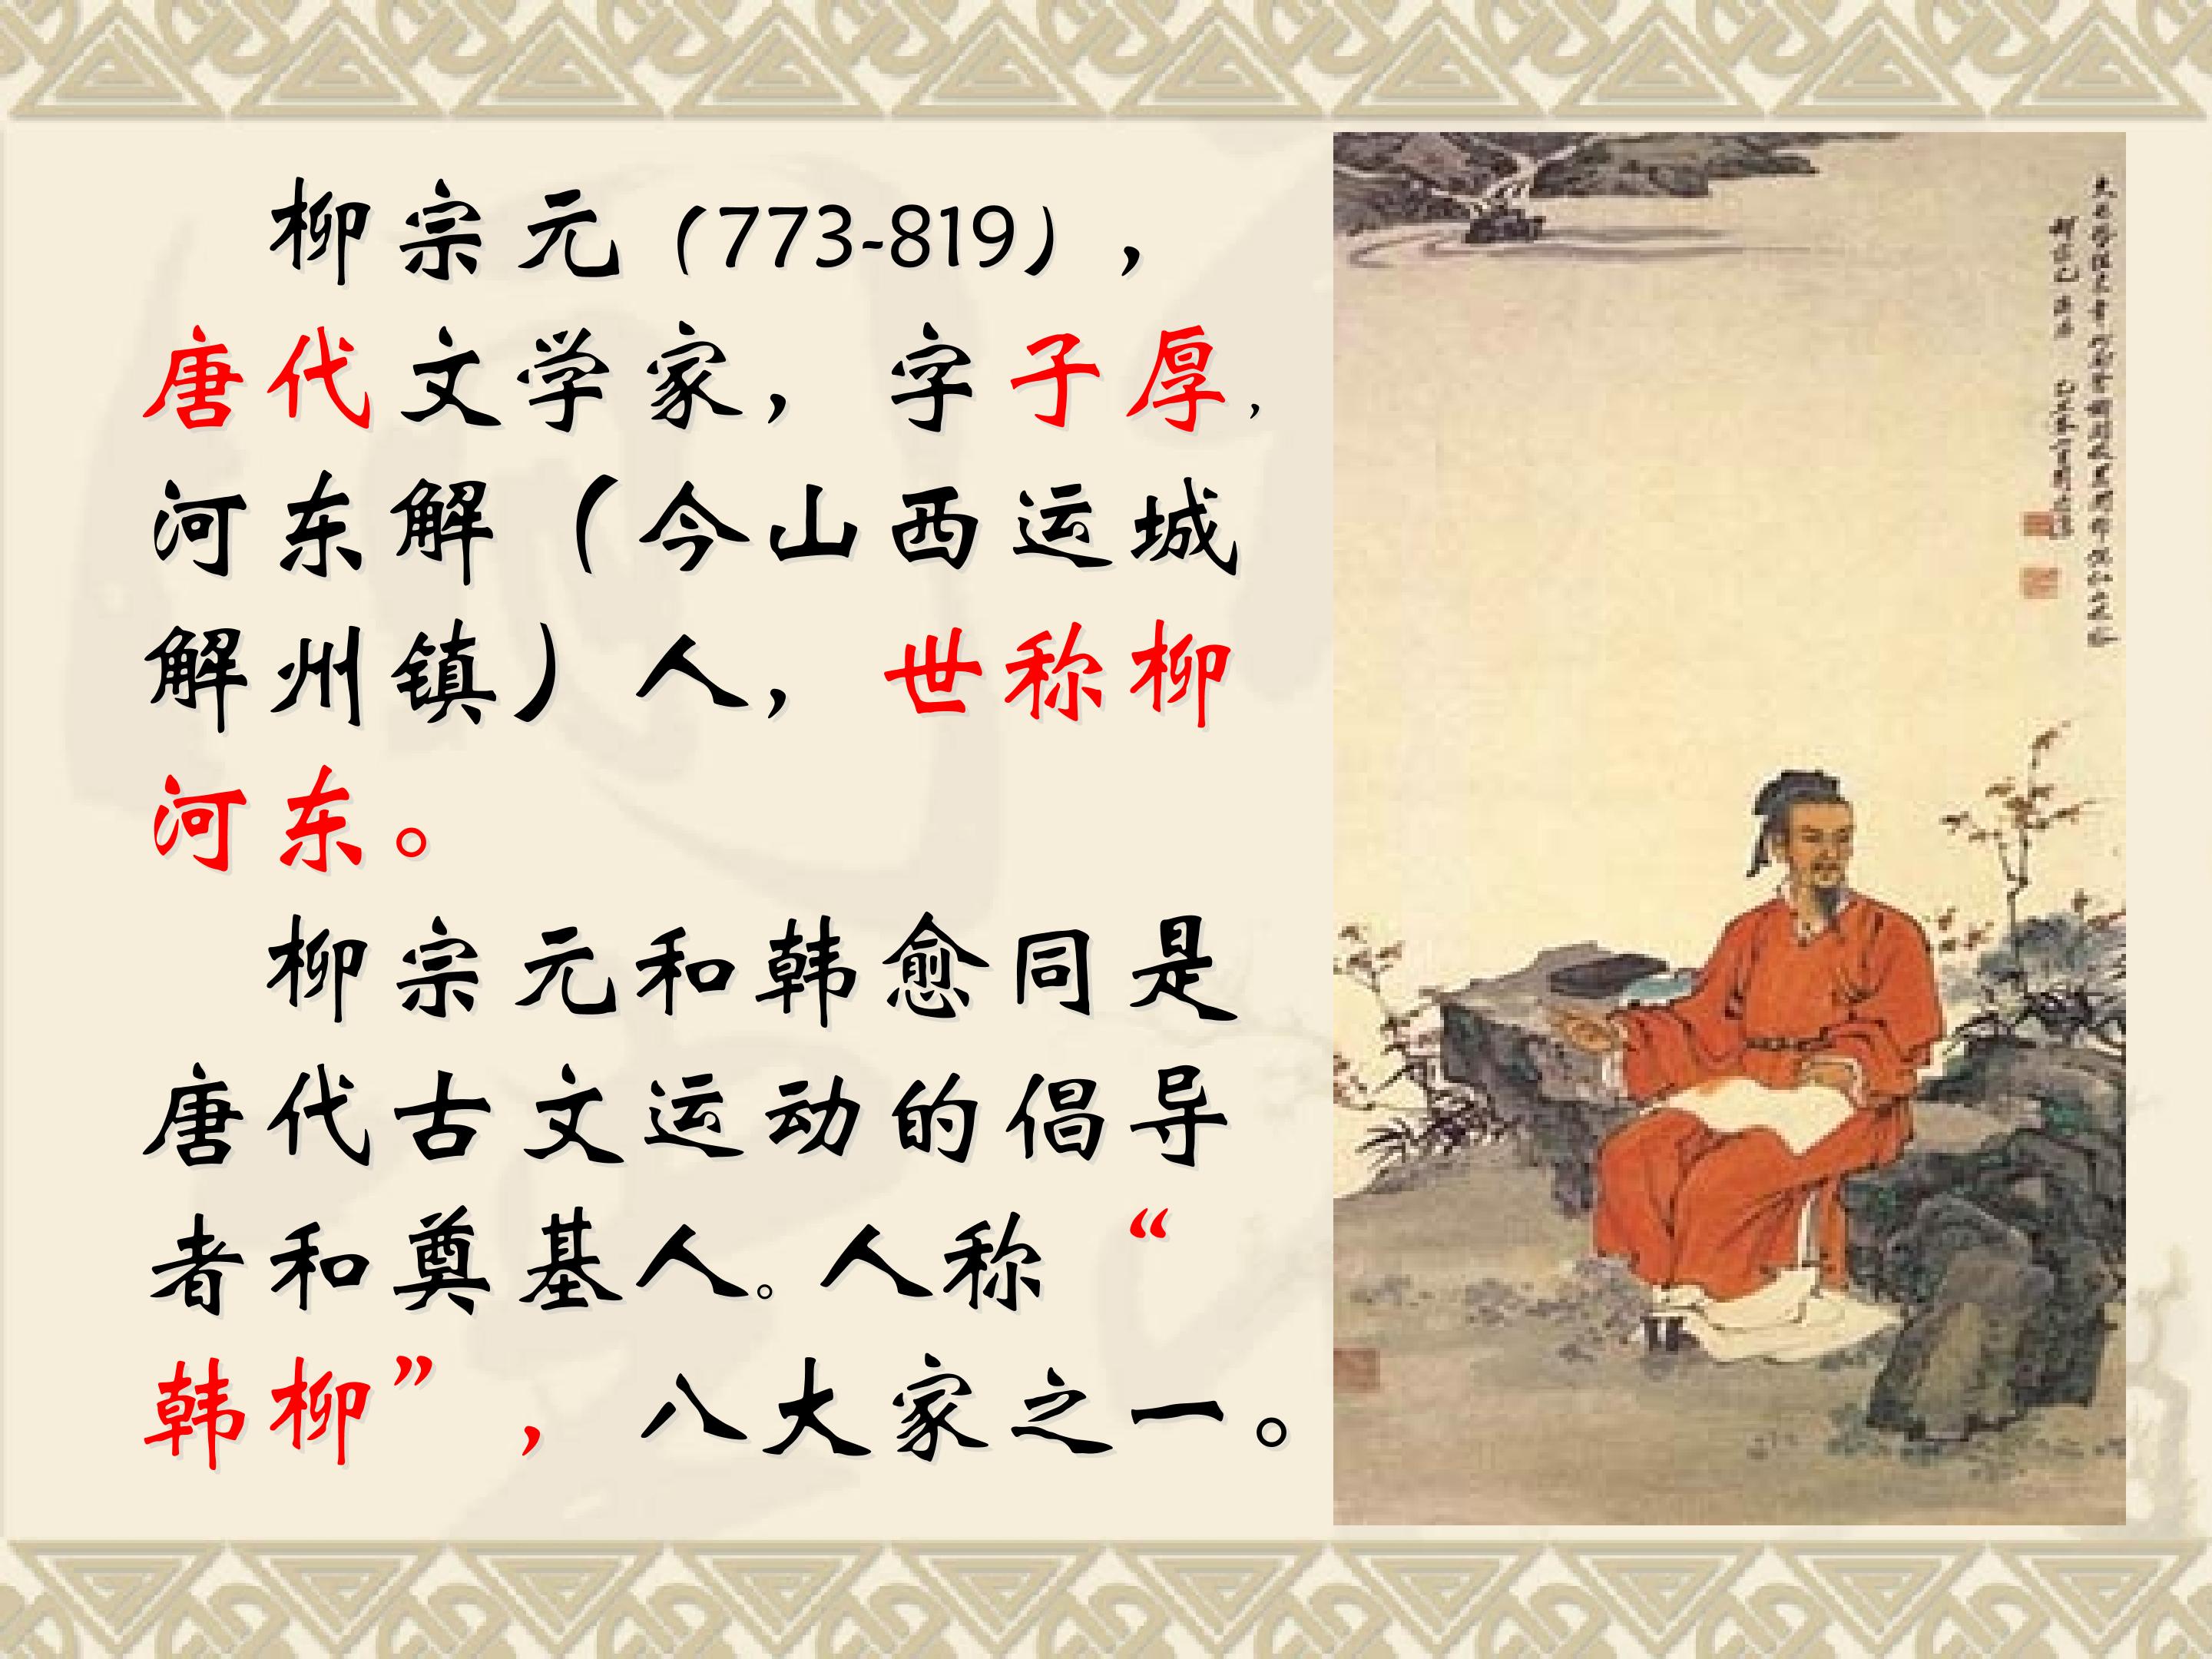 柳宗元（773-819），
唐代文学家，字子厚，
河东解（今山西运城
解州镇）人，世称柳
河东。
柳宗元和韩愈同是
唐代古文运动的倡导
者和奠基人。人称“
韩柳”，八大家之一。